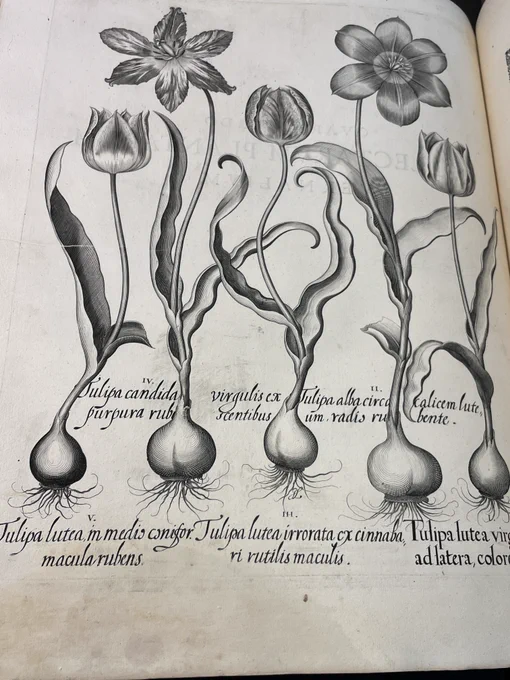 IV.
Tulipa candida virgulis ex
purpura rube scentibus
II.
Tulipa alba circa calicem lute,
um. radio ru bente.
V.
Tulipa lutea, in medio conifor
macula rubens.
III.
Tulipa lutea irrorata ex cinnaba,
ri rutilis maculis.
Tulipa lutea virg
ad latera, colore